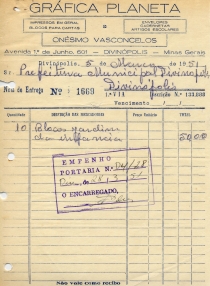 GRÁFICA PLANETA
IMPRESSOS EM GERAL
BLOCOS PARA CARTAS
ENVELOPES
CADERNETAS
ARTIGOS ESCOLARES
DE
ONÉSIMO VASCONCELOS
Avenida 1º de Junho, 601 — DIVINÓPOLIS — Minas Gerais
Divinópolis, 5 de Março de 1951
Sr. Prefeitura Municipal Divinópolis
Divinópolis
Nota de Entrega Nº 1669
Vencimento
Quantidade DESCRIÇÃO DAS MERCADORIAS Preço Unitário TOTAL
10 Blocos jardim
da infancia 50,00
EMPENHO
PORTARIA N.
O ENCARREGADO,
Não vale como recibo